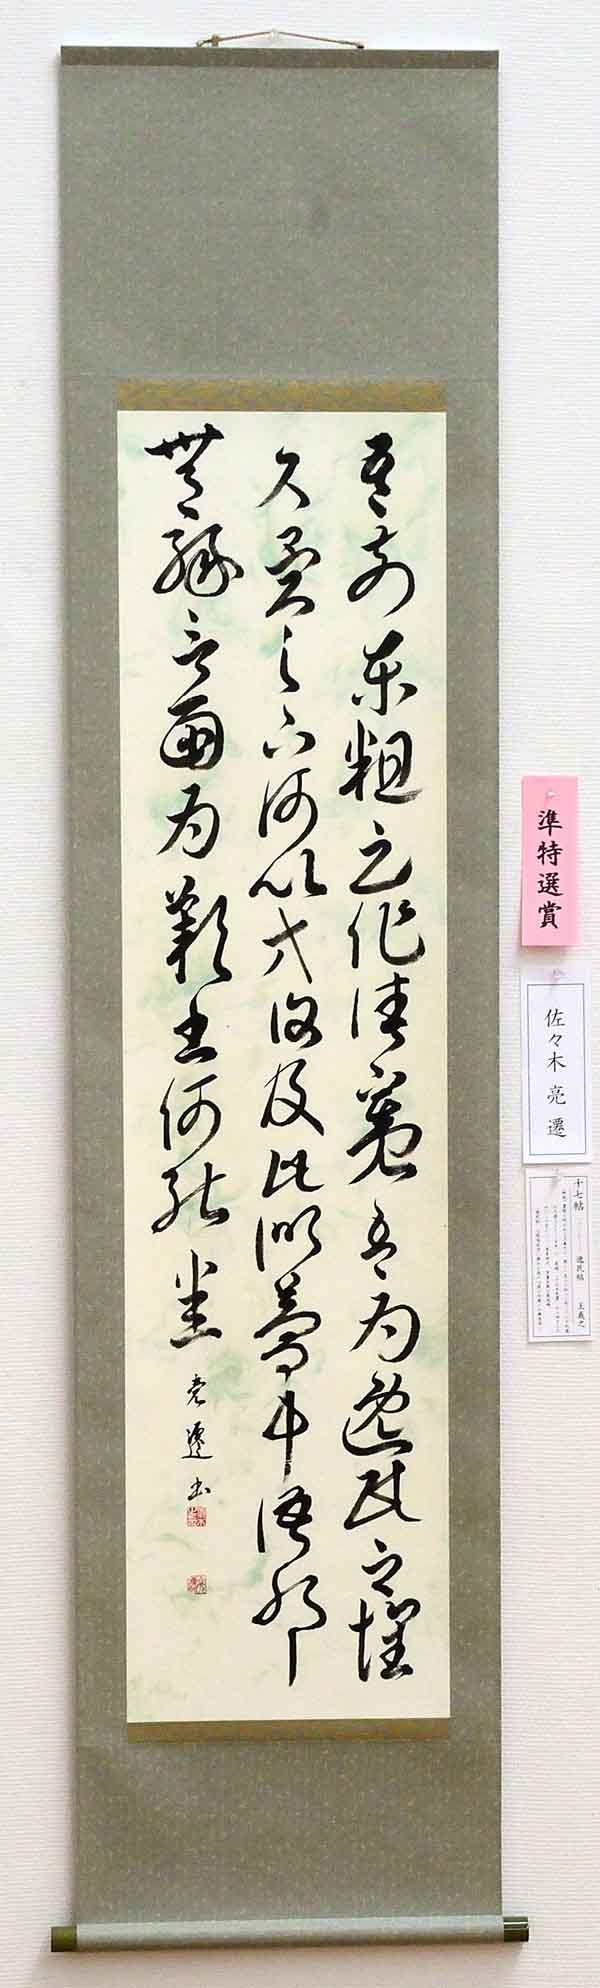 吾前東粗足作佳觀吾為逸民之懷
久矣足下何以方復及此似夢中語耶
無緣言面為歎書何能悉 亮遷書
準特選賞
佐々木 亮遷
十七帖 逸民帖 王羲之